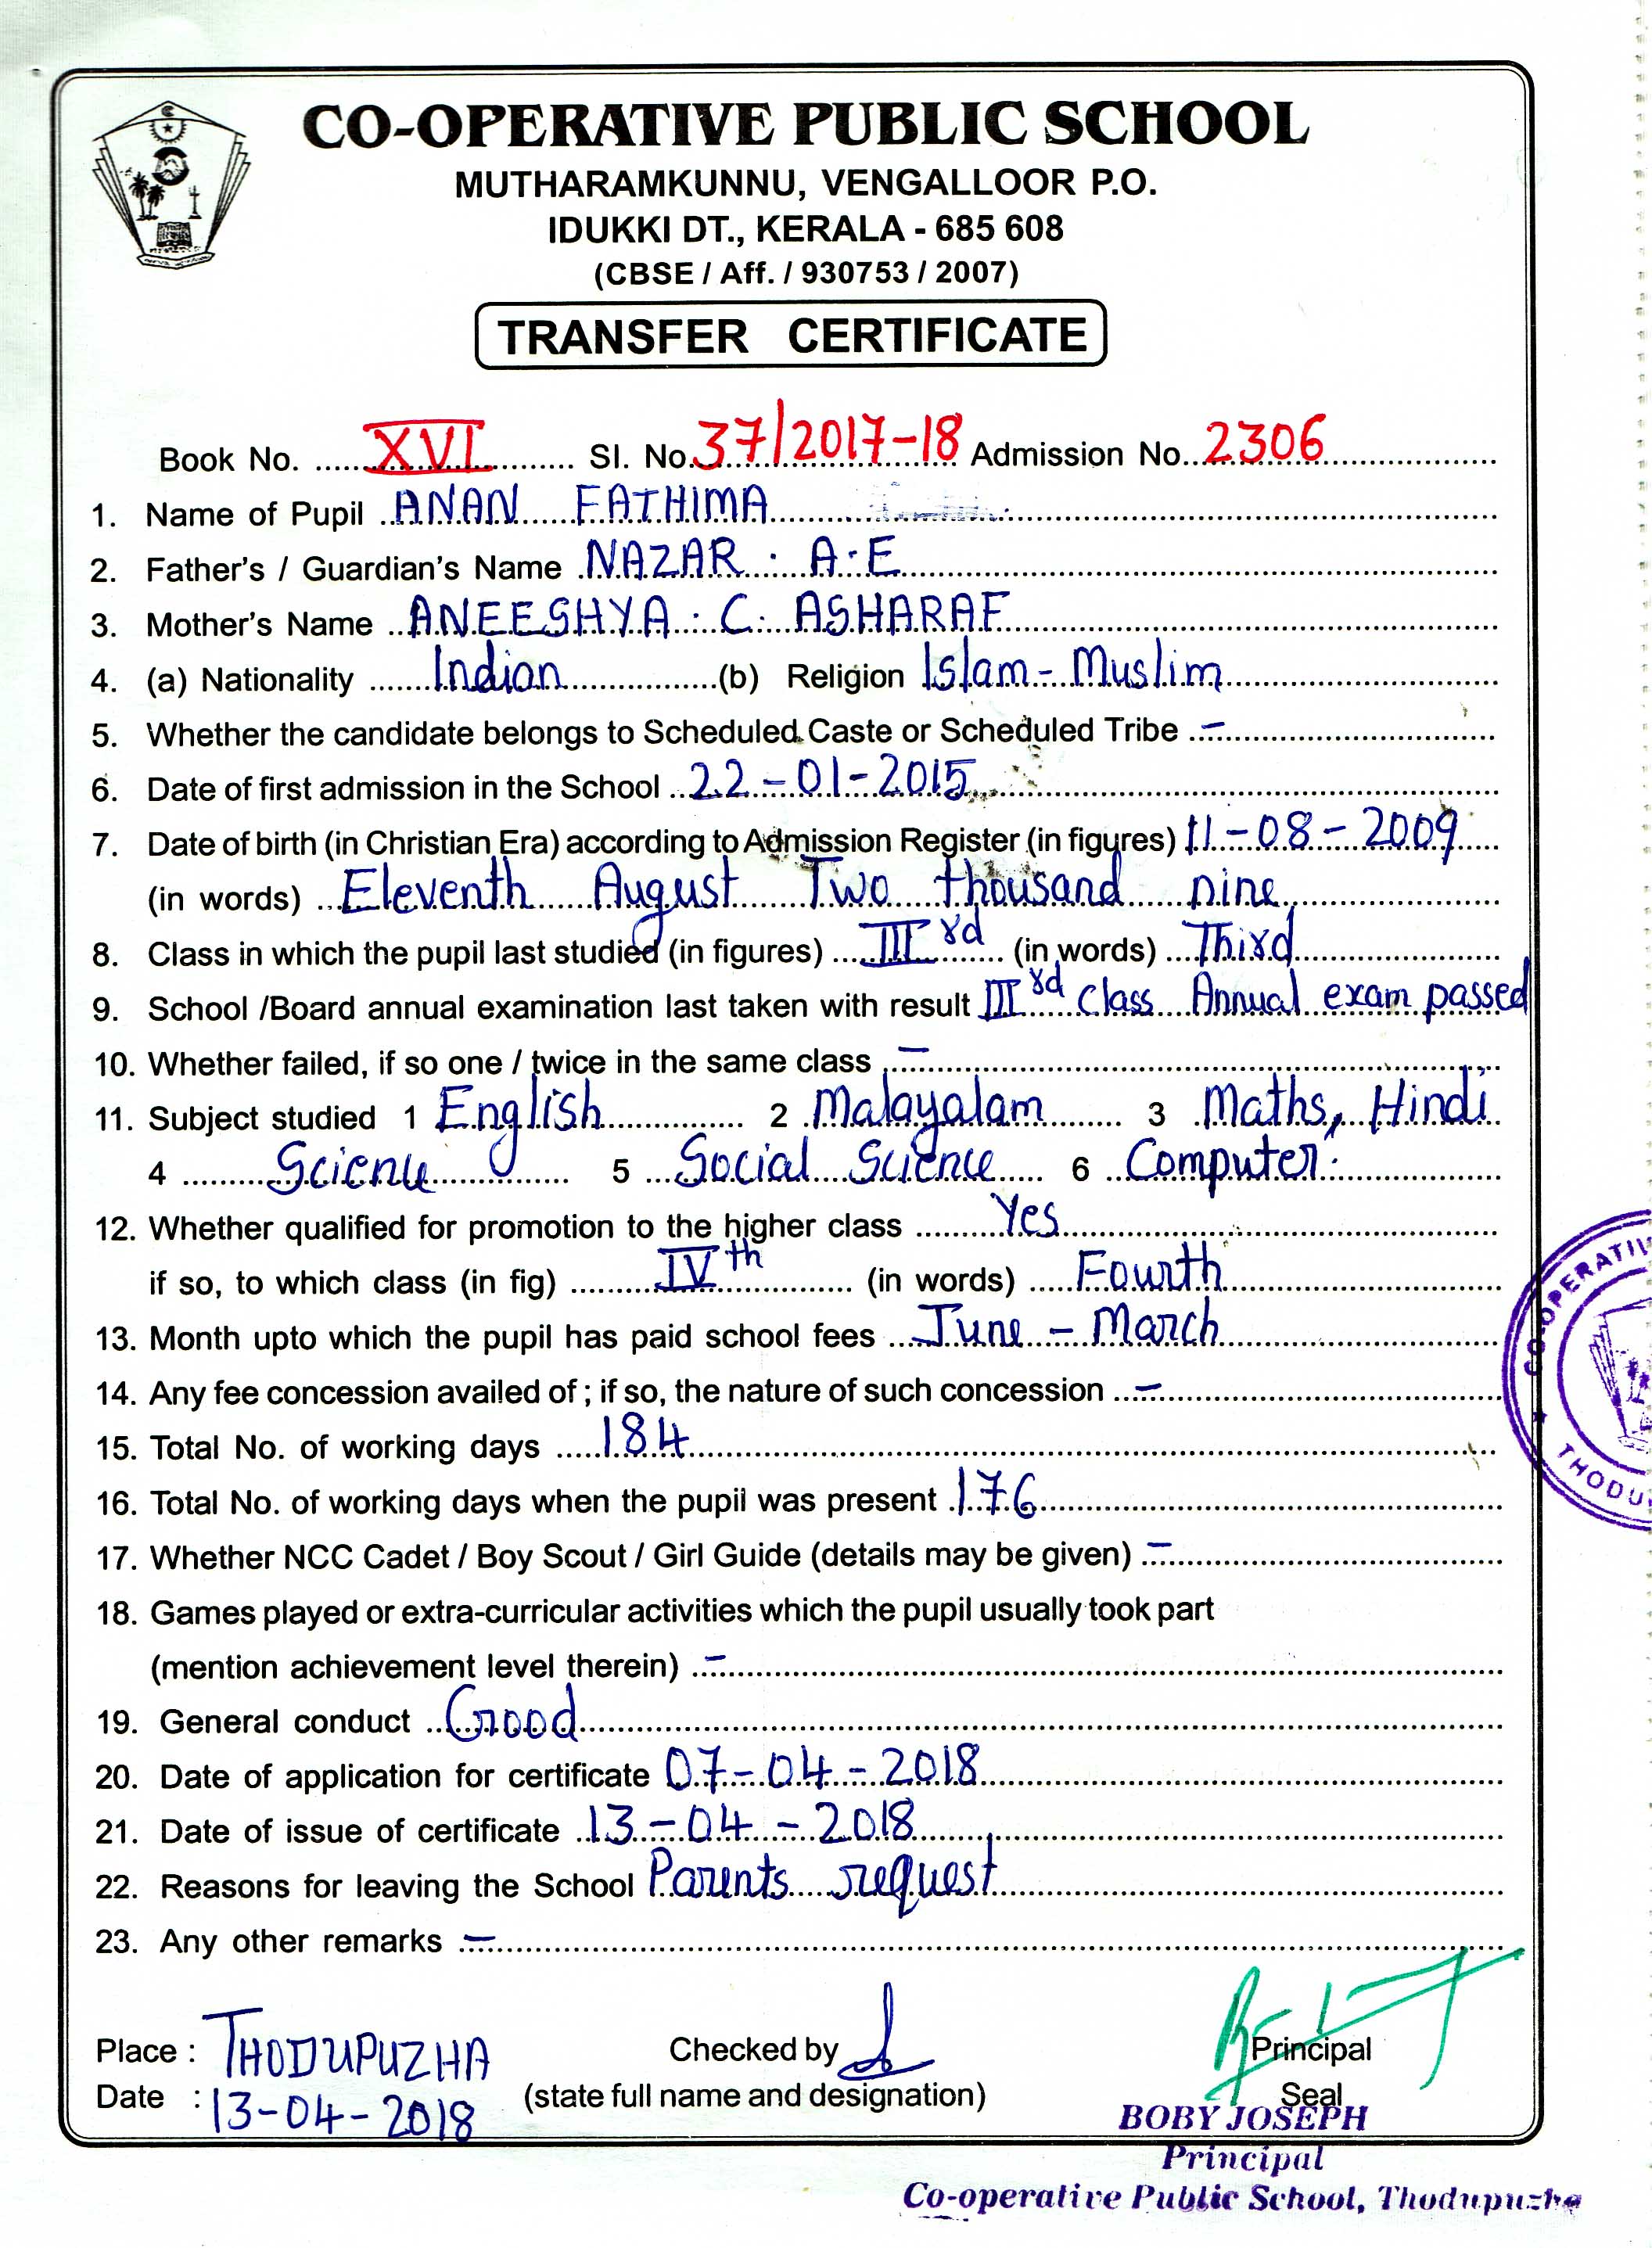 CO-OPERATIVE PUBLIC SCHOOL
MUTHARAMKUNNU, VENGALLOOR P.O.
IDUKKI DT., KERALA - 685 608
(CBSE / Aff. / 930753 / 2007)
TRANSFER CERTIFICATE
Book No. XVI Sl. No. 37/2017-18 Admission No. 2306
1. Name of Pupil ANAN FATHIMA
2. Father's / Guardian's Name NAZAR . A.E
3. Mother's Name ANEESHYA . C. ASHARAF
4. (a) Nationality Indian (b) Religion Islam - Muslim
5. Whether the candidate belongs to Scheduled Caste or Scheduled Tribe -
6. Date of first admission in the School 22-01-2015
7. Date of birth (in Christian Era) according to Admission Register (in figures) 11-08-2009
(in words) Eleventh August Two thousand nine
8. Class in which the pupil last studied (in figures) III rd (in words) Third
9. School /Board annual examination last taken with result III rd class Annual exam passed
10. Whether failed, if so one / twice in the same class -
11. Subject studied 1 English 2 Malayalam 3 Maths, Hindi
4 Science 5 Social Science 6 Computer.
12. Whether qualified for promotion to the higher class Yes
if so, to which class (in fig) IV th (in words) Fourth
13. Month upto which the pupil has paid school fees June - March
14. Any fee concession availed of ; if so, the nature of such concession -
15. Total No. of working days 184
16. Total No. of working days when the pupil was present 176
17. Whether NCC Cadet / Boy Scout / Girl Guide (details may be given) -
18. Games played or extra-curricular activities which the pupil usually took part
(mention achievement level therein) -
19. General conduct Good
20. Date of application for certificate 07-04-2018
21. Date of issue of certificate 13-04-2018
22. Reasons for leaving the School Parents request
23. Any other remarks -
Place : THODUPUZHA Checked by Principal
Date : 13-04-2018 (state full name and designation) Seal
BOBY JOSEPH
Principal
Co-operative Public School, Thodupuzha
CO-OPERATIV
THODU